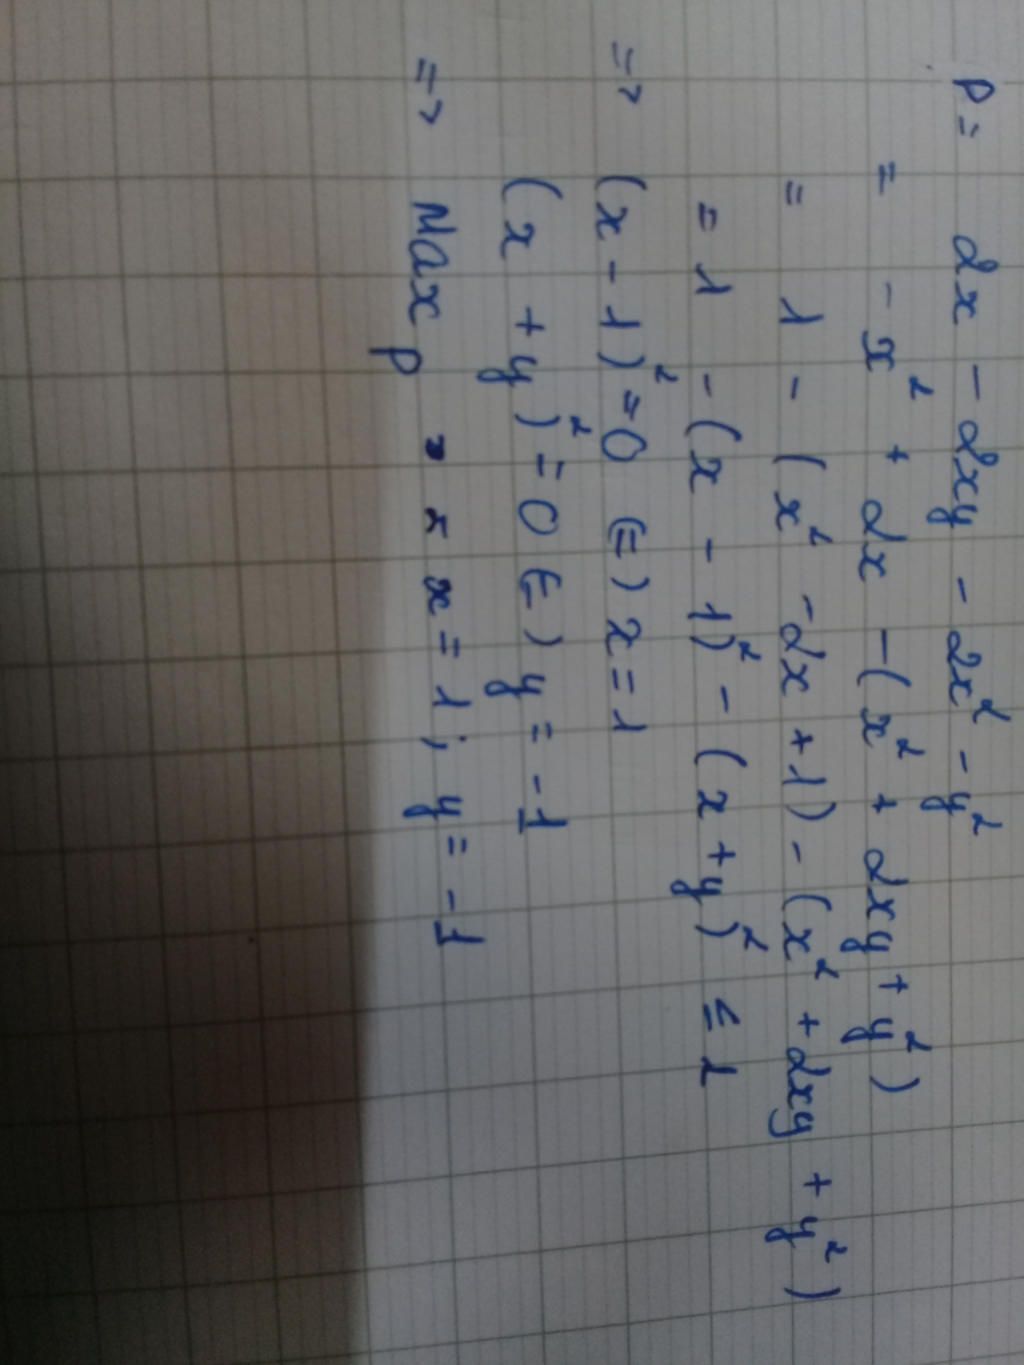 P = 2x - 2xy - 2x² - y²
= - x² + 2x - (x² + 2xy + y²)
= 1 - (x² - 2x + 1) - (x² + 2xy + y²)
= 1 - (x - 1)² - (x + y)² ≤ 1
=> (x - 1)² = 0 (=) x = 1
(x + y)² = 0 (=) y = -1
=> Max P = x = 1 ; y = -1